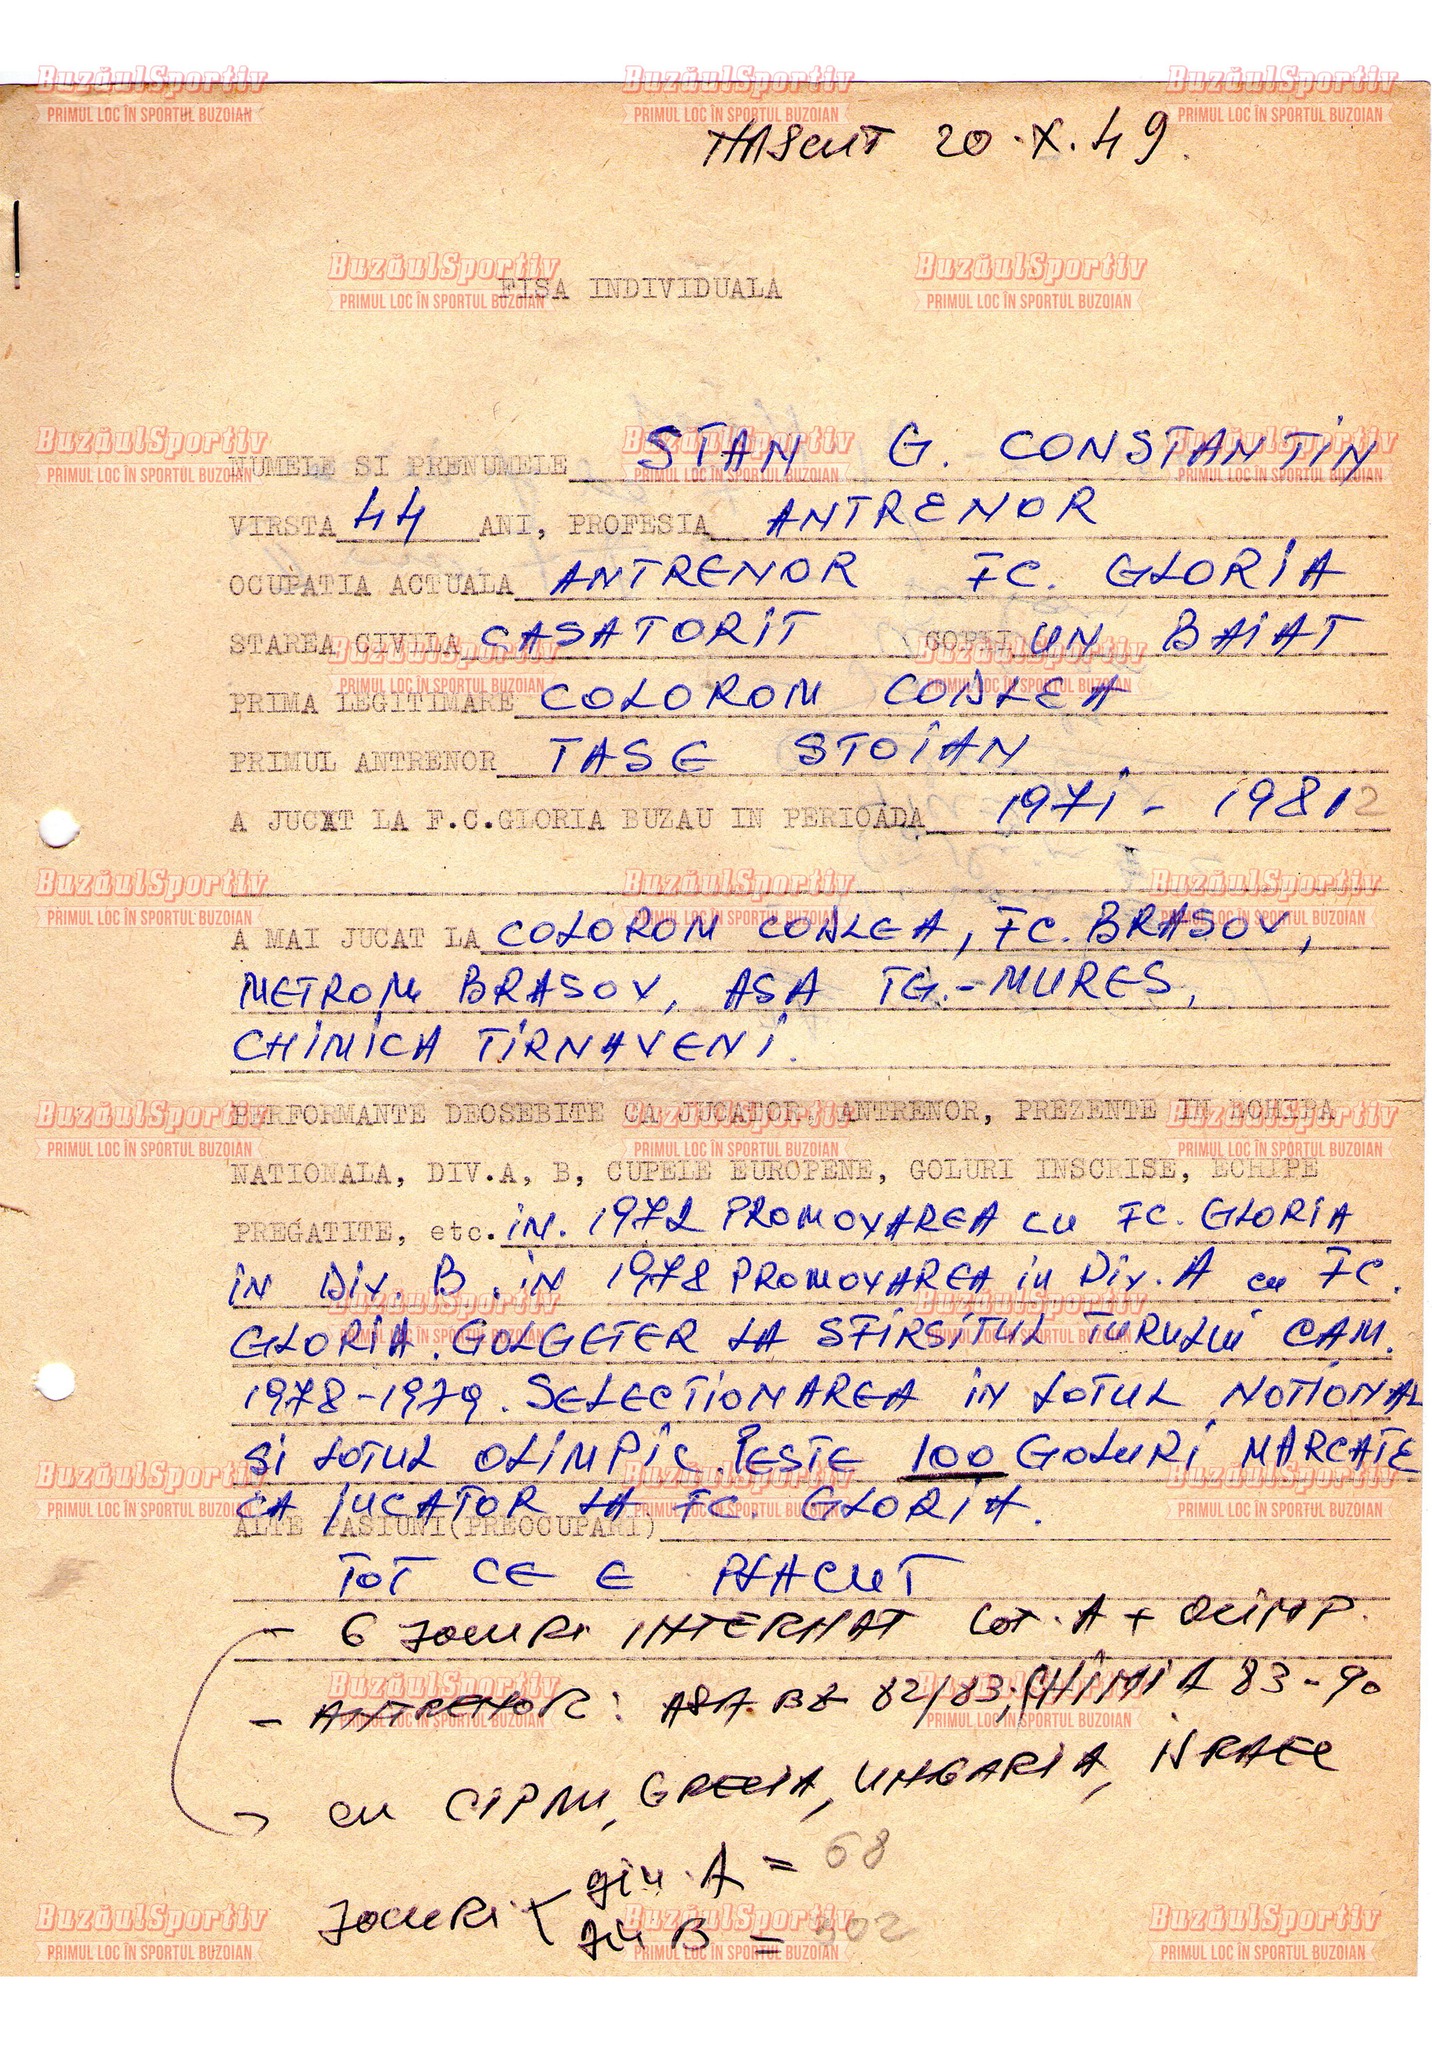 NASCUT 20.X.49.
FISA INDIVIDUALA
NUMELE SI PRENUMELE STAN G. CONSTANTIN
VIRSTA 44 ANI, PROFESIA ANTRENOR
OCUPATIA ACTUALA ANTRENOR FC. GLORIA
STAREA CIVILA CASATORIT COPII UN BAIAT
PRIMA LEGITIMARE COLOROM CODLEA
PRIMUL ANTRENOR TASE STOIAN
A JUCAT LA F.C.GLORIA BUZAU IN PERIOADA 1971 - 1982
A MAI JUCAT LA COLOROM CODLEA, FC. BRASOV,
METROM BRASOV, ASA TG.-MURES,
CHIMICA TIRNAVENI.
PERFORMANTE DEOSEBITE CA JUCATOR, ANTRENOR, PREZENTE IN ECHIPA
NATIONALA, DIV.A, B, CUPELE EUROPENE, GOLURI INSCRISE, ECHIPE
PREGATITE, etc. IN. 1972 PROMOVAREA CU FC. GLORIA
IN DIV. B. IN 1978 PROMOVAREA IN DIV. A CU FC.
GLORIA. GOLGETER LA SFIRSITUL TURULUI CAM.
1978-1979. SELECTIONAREA IN LOTUL NOTIONAL
SI LOTUL OLIMPIC. PESTE 100 GOLURI MARCATE
CA JUCATOR LA FC. GLORIA.
ALTE PASIUNI(PREOCUPARI)
TOT CE E PLACUT
- 6 JOCURI INTERNAT LOT. A + OLIMP.
- ANTRENOR: ASA BZ 82/83; CHIMIA 83-90
CU CIPRU, GRECIA, UNGARIA, ISRAEL
JOCURI div. A = 68
div B =
BuzăulSportiv
PRIMUL LOC ÎN SPORTUL BUZOIAN